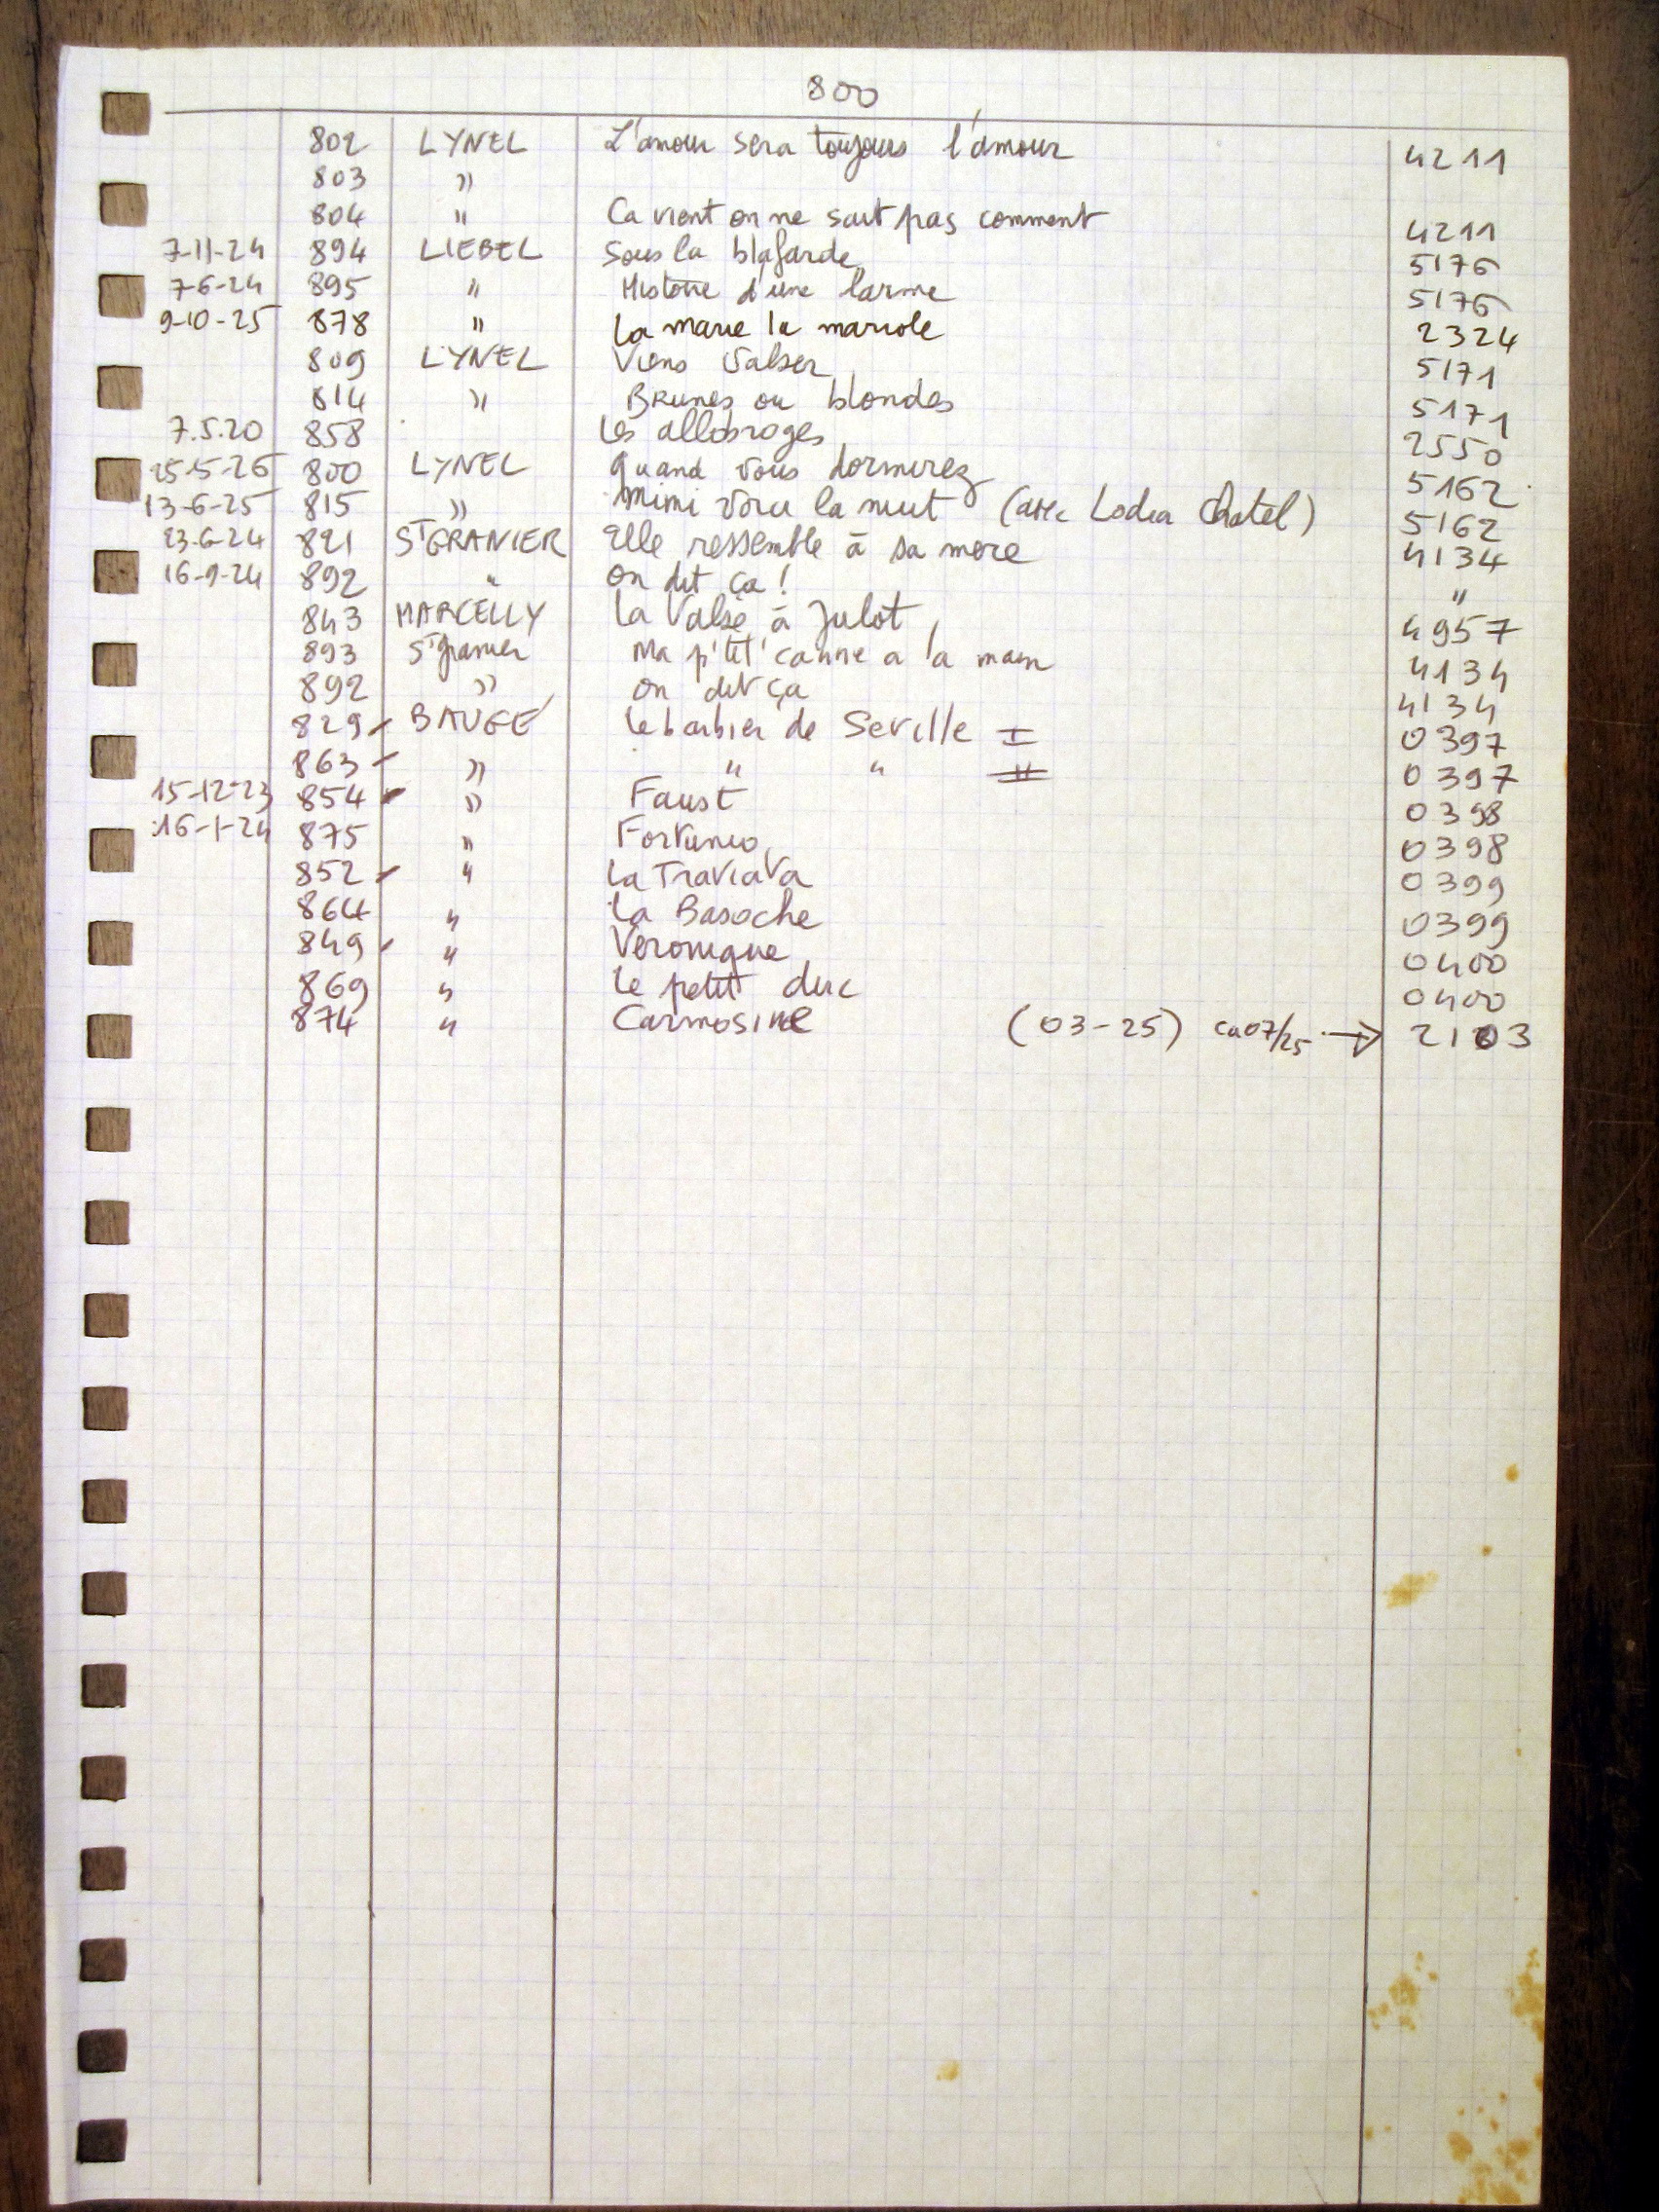 800
802 LYNEL L'amour sera toujours l'amour 4211
803 "
804 " Ca vient on ne sait pas comment 4211
7-11-24 894 LIEBEL Sous la blafarde 5176
7-6-24 895 " Histoire d'une larme 5176
9-10-25 878 " La marie la mariole 2324
809 LYNEL Viens valser 5171
814 " Brunes ou blondes 5171
7.5.20 858 Les allobroges 2550
25-5-26 800 LYNEL Quand vous dormirez 5162
13-6-25 815 " Mimi voici la nuit (avec Lodia Chatel) 5162
23-6-24 821 St GRANIER Elle ressemble à sa mere 4134
16-9-24 892 " on dit ça ! "
843 MARCELLY La Valse à Julot 4957
893 St granier Ma p'tit' canne a la main 4134
892 " on dit ça 4134
829 - BAUGÉ Le barbier de Seville I 0397
863 - " " " II 0397
15-12-23 854 - " Faust 0398
16-1-24 875 " Fortunio 0398
852 - " La Traviata 0399
864 " La Basoche 0399
849 - " Veronique 0400
869 " Le petit duc 0400
874 " Carmosine (03-25) ca07/25 → 2103